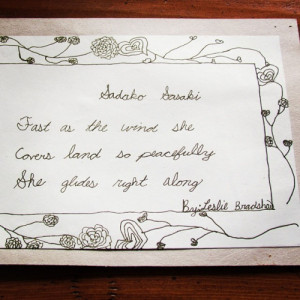 Sadako Sasaki
Fast as the wind she
Covers land so peacefully
She glides right along
By: Leslie Bradshaw